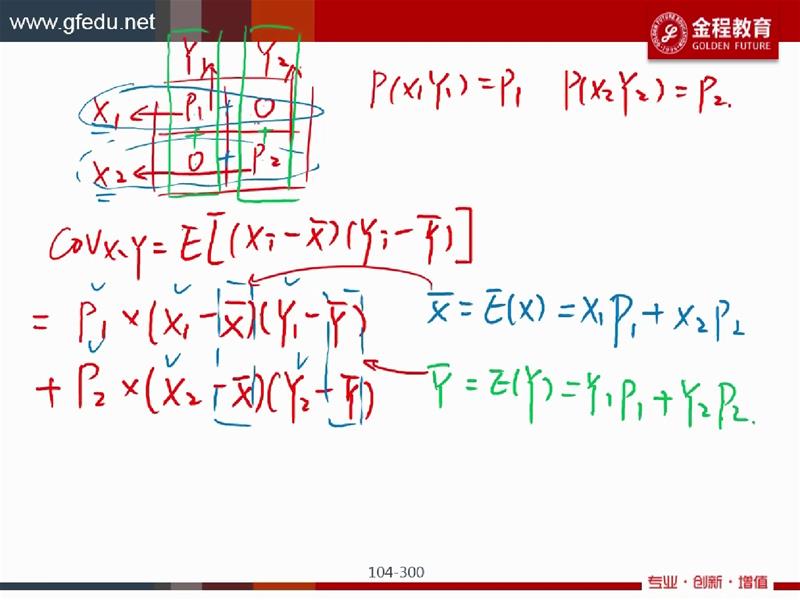 www.gfedu.net
金程教育
GOLDEN FUTURE
Y₁ Y₂
X₁ P₁ 0
X₂ 0 P₂
P(X₁Y₁)=P₁ P(X₂Y₂)=P₂.
COV X,Y = E[(Xᵢ-X̄)(Yᵢ-Ȳ)]
= P₁×(X₁-X̄)(Y₁-Ȳ) X̄=E(X)=X₁P₁+X₂P₂
+ P₂×(X₂-X̄)(Y₂-Ȳ) Ȳ=E(Y)=Y₁P₁+Y₂P₂.
104-300
专业·创新·增值